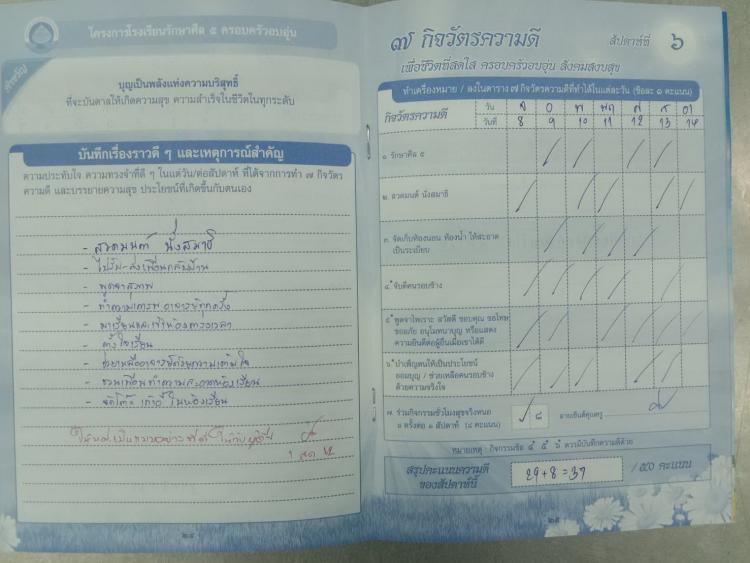 โครงการโรงเรียนรักษาศีล ๕ ครอบครัวอบอุ่น
บุญเป็นพลังแห่งความบริสุทธิ์
ที่จะบันดาลให้เกิดความสุข ความสำเร็จในชีวิตในทุกระดับ
บันทึกเรื่องราวดี ๆ และเหตุการณ์สำคัญ
ความประทับใจ ความทรงจำที่ดี ๆ ในแต่วัน/ต่อสัปดาห์ ที่ได้จากการทำ ๗ กิจวัตร
ความดี และบรรยายความสุข ประโยชน์ที่เกิดขึ้นกับตนเอง
- สวดมนต์ นั่งสมาธิ
- ไปรับ-ส่งเพื่อนกลับบ้าน
- พูดจาสุภาพ
- ทำความเคารพอาจารย์ทุกครั้ง
- มาเรียนและเข้าห้องตรงเวลา
- ตั้งใจเรียน
- ช่วยเหลืออาจารย์ด้วยความเต็มใจ
- ชวนเพื่อนทำความสะอาดห้องเรียน
- จัดโต๊ะ เก้าอี้ ในห้องเรียน
๒๔
๗ กิจวัตรความดี
สัปดาห์ที่ ๖
เพื่อชีวิตที่สดใส ครอบครัวอบอุ่น สังคมสงบสุข
ทำเครื่องหมาย / ลงในตาราง ๗ กิจวัตรความดีที่ทำได้ในแต่ละวัน (ข้อละ ๑ คะแนน)
กิจวัตรความดี
วัน จ อ พ พฤ ศ ส อา
วันที่ 8 9 10 11 12 13 14
๑. รักษาศีล ๕
๒. สวดมนต์ นั่งสมาธิ
๓. จัดเก็บห้องนอน ห้องน้ำ ให้สะอาด
เป็นระเบียบ
๔. จับดีคนรอบข้าง
๕. พูดจาไพเราะ สวัสดี ขอบคุณ ขอโทษ
ขออภัย อนุโมทนาบุญ หรือแสดง
ความยินดีต่อผู้อื่นเมื่อเขาได้ดี
๖. บำเพ็ญตนให้เป็นประโยชน์
ออมบุญ / ช่วยเหลือคนรอบข้าง
ด้วยความจริงใจ
๗. ร่วมกิจกรรมชั่วโมงสุขจริงหนอ
๑ ครั้งต่อ ๑ สัปดาห์ (๘ คะแนน)
/ ๘
ลายเซ็นต์คุณครู
หมายเหตุ : กิจกรรมข้อ ๔ ๕ ๖ ควรมีบันทึกความดีด้วย
สรุปคะแนนความดี
ของสัปดาห์นี้
29+8=37
/ ๕๐ คะแนน
๒๕